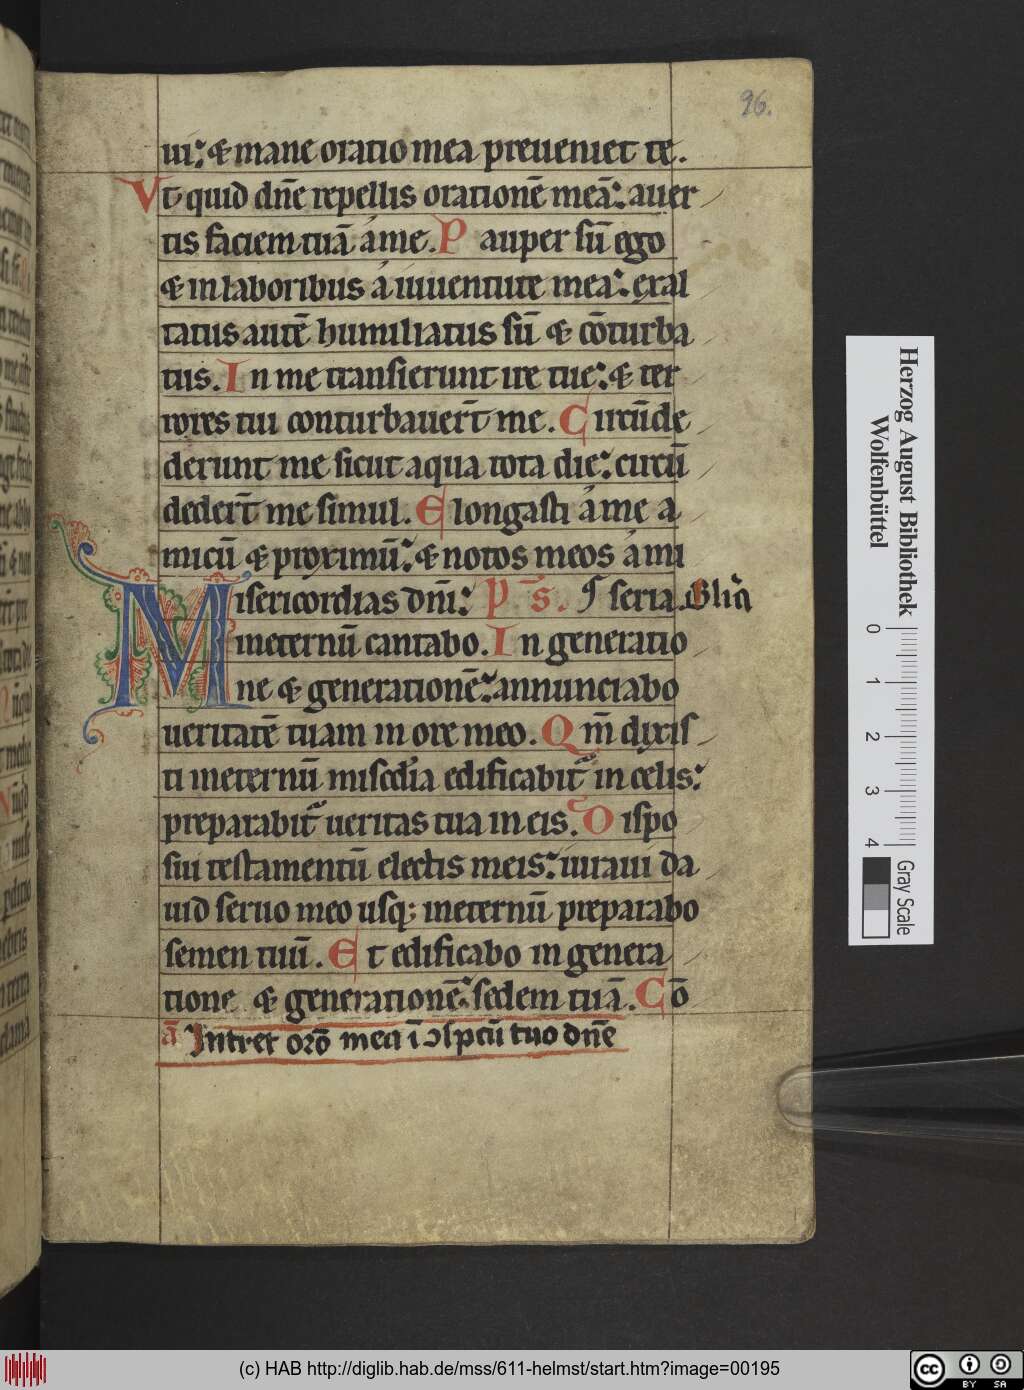 96.
ui: & mane oratio mea preueniet te.
Vt quid dn̄e repellis orationē meā: auer
tis faciem tuā a me. Pauper sū ego
& in laboribus a iuuentute mea: exal
tatus autē humiliatus sū & cōturba
tus. In me transierunt ire tue: & ter
rores tui conturbauer̄t me. Circūde
derunt me sicut aqua tota die: circū
deder̄t me simul. Elongasti a me a
micū & proximū: & notos meos a mi
Misericordias dn̄i: P̄s. seria. Glīa
ineternū cantabo. In generatio
ne & generationē: annunciabo
ueritatē tuam in ore meo. Qm̄ dixis
ti ineternū misc̄dia edificabit᷑ in celis:
preparabit᷑ ueritas tua in eis. Dispo
sui testamentū electis meis: iuraui da
uid seruo meo usq; ineternū preparabo
semen tuū. Et edificabo in genera
tione & generationē: sedem tuā. Cō
a̅ Intret or̄o mea ī ɔspcū tuo dn̄e
Herzog August Bibliothek
Wolfenbüttel
0 1 2 3 4
Gray Scale
(c) HAB http://diglib.hab.de/mss/611-helmst/start.htm?image=00195
cc BY SA